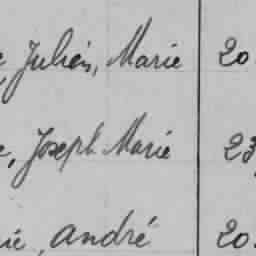 Julien, Marie 20
, Joseph Marie 23
rie, André 20.